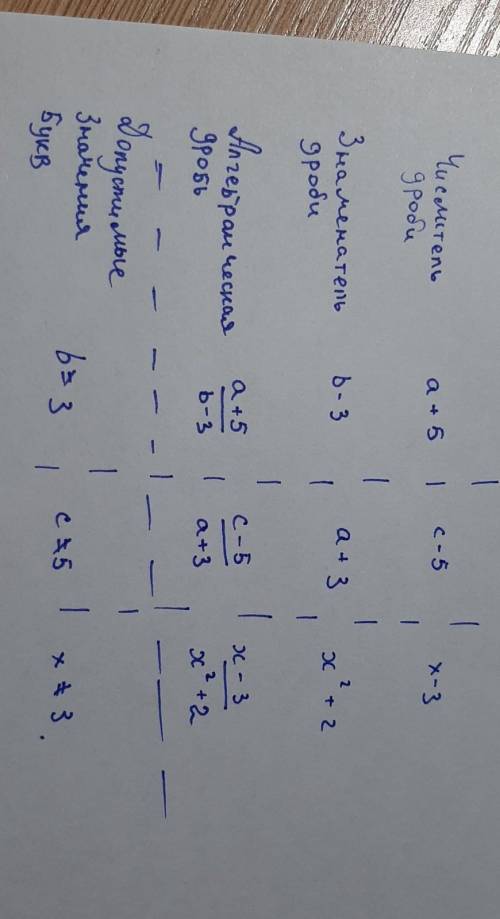 Числитель дроби a + 5 c - 5 x - 3
Знаменатель дроби b - 3 a + 3 x² + 2
Алгебраическая дробь a + 5 / b - 3 c - 5 / a + 3 x - 3 / x² + 2
Допустимые значения букв b ≠ 3 c ≠ 5 x ≠ 3.